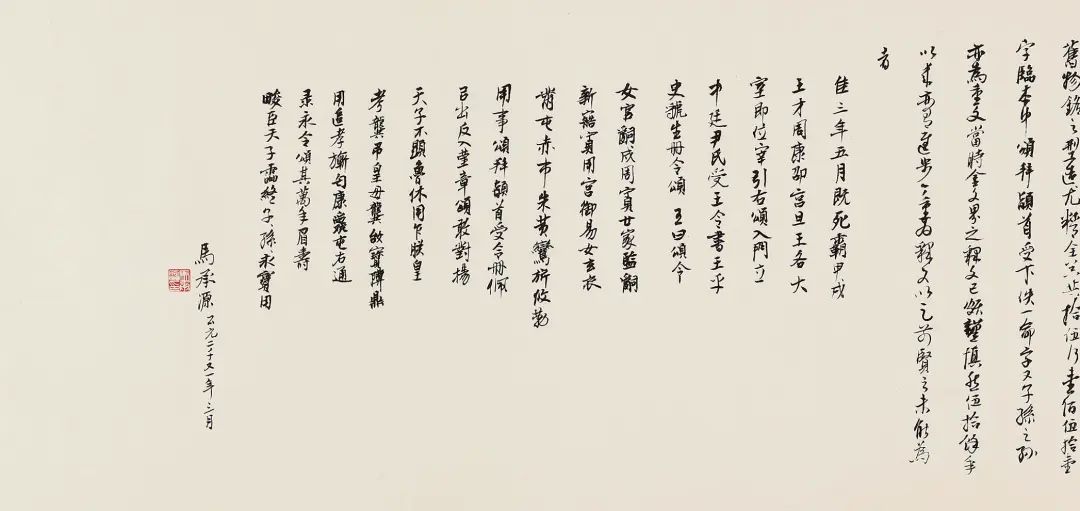 舊物銘之刑造尤精全文止拾伍行壹佰伍拾壹
字臨本巾頌拜䭫首受下佚一命字又子孫之孫
亦為重文當時金文界之釋文已頗謹慎然伍拾餘年
以來亦有進步今畧為釋文以之前賢之未能為
者
隹三年五月既死霸甲戌
王才周康卲宮旦王各大
室即位宰引右頌入門立
中廷尹氏受王令書王乎
史虢生冊令頌王曰頌令
女官𤔲成周賈廿家監𤔲
新寤賈用宮御易女玄衣
黹屯赤巿朱黃䜌旂攸勒
用事頌拜䭫首受令冊佩
㠯出反入堇章頌敢對揚
天子不顯魯休用乍朕皇
考龔弔皇母龔姒寶䵼鼎
用追孝旂匄康𩁹屯右通
彔永令頌其萬年眉壽
畯臣天子霝終子孫永寶用
馬承源公元二千又一年三月